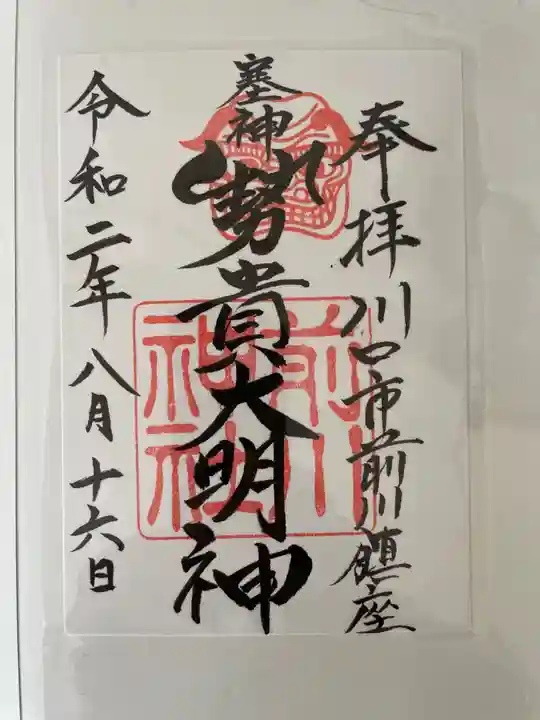 奉拝 川口市前川鎮座
塞神
勢貴大明神
前川神社
令和二年八月十六日